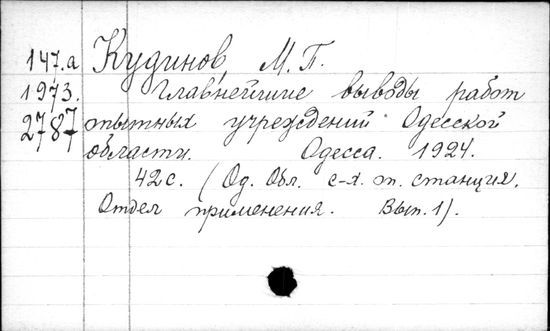 147.а Кудинов, М.П.
1973. Главнейшие выводы работ
2787 опытных учреждений Одесской
области. Одесса. 1924.
42с. (Од. Обл. с-х. оп. станция.
Отдел применения. Вып. 1).